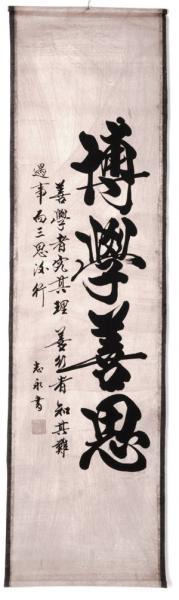 博學善思
善學者究其理 善行者 知其難
遇事而三思後行
志永書